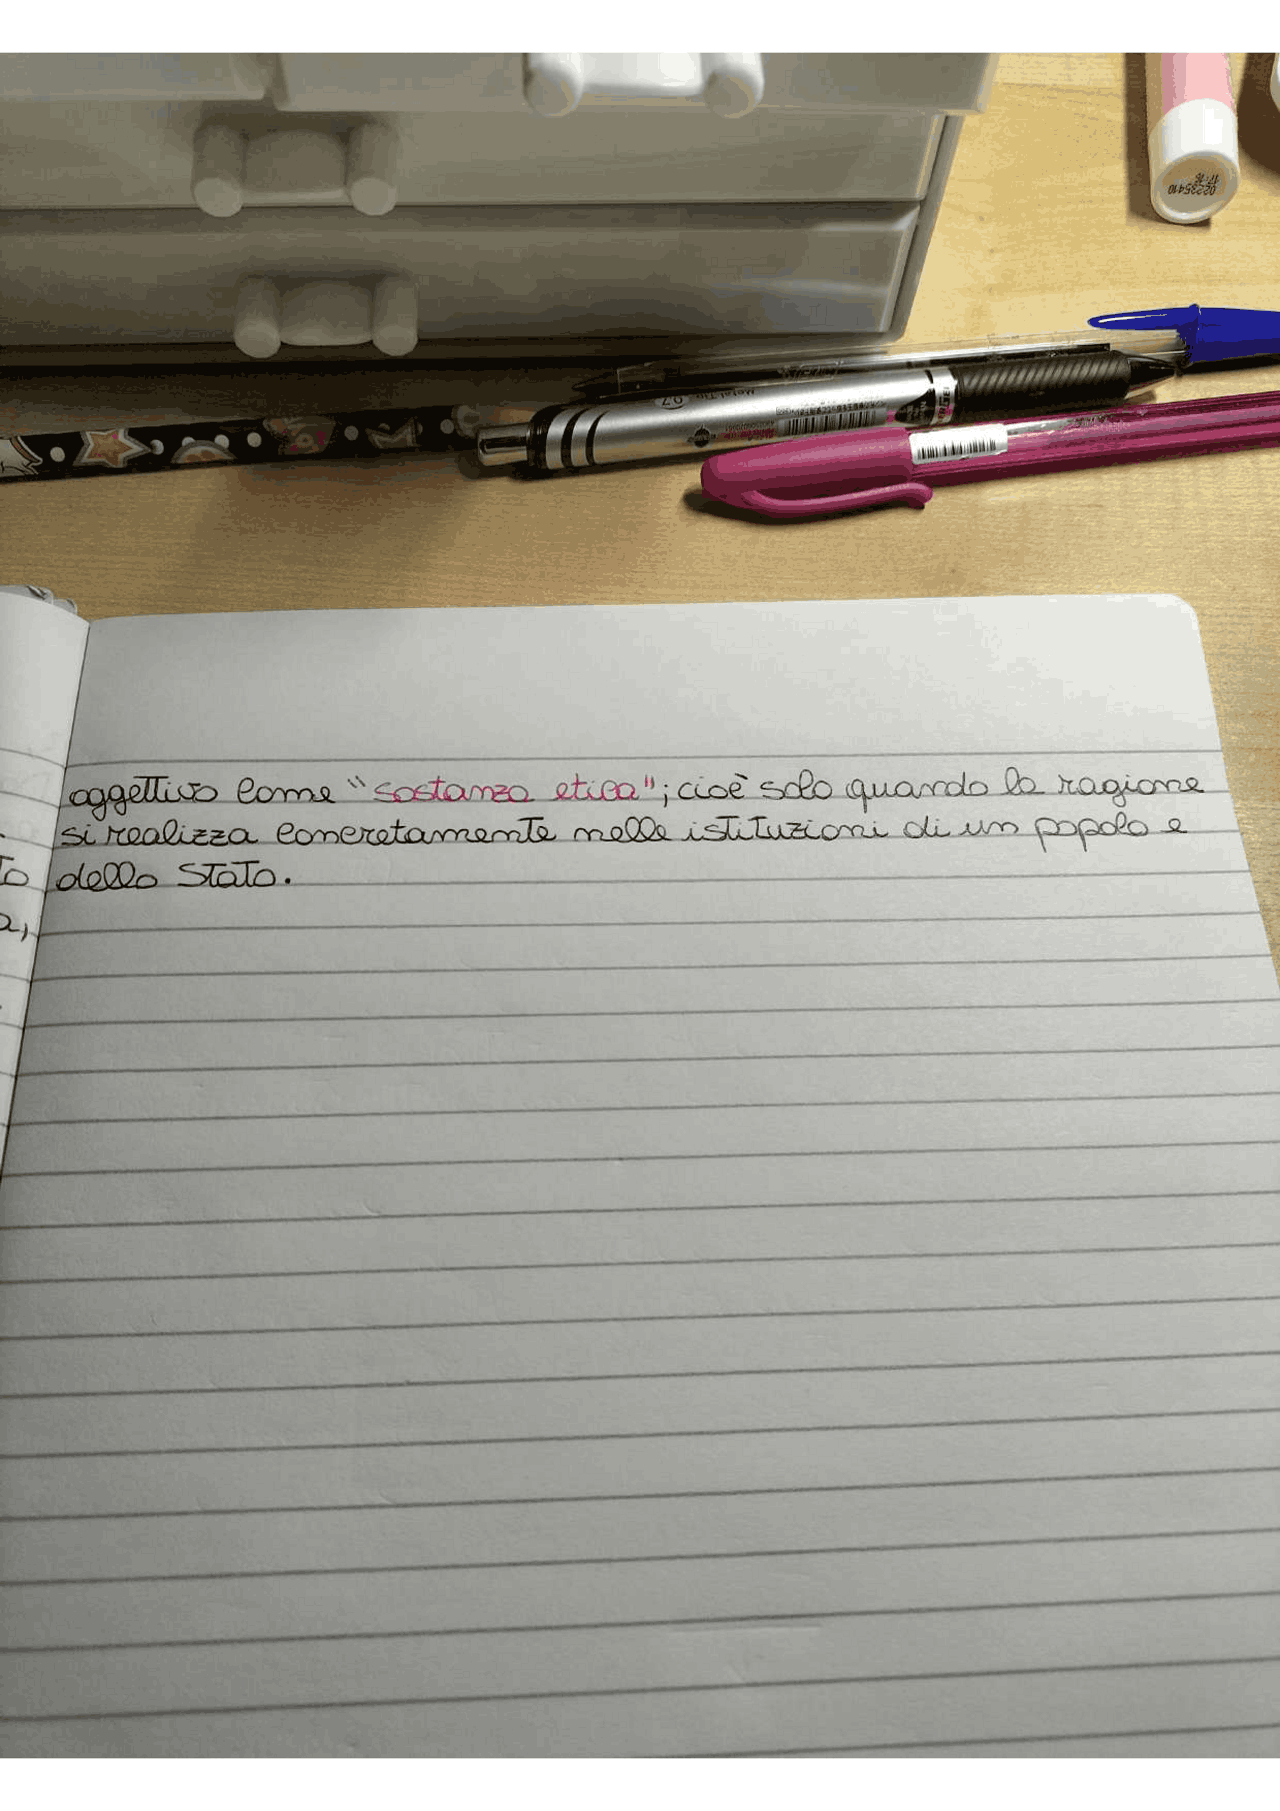 oggettivo come "sostanza etica"; cioè solo quando la ragione
si realizza concretamente nelle istituzioni di un popolo e
dello Stato.
02235410
Metal Tip 0.7